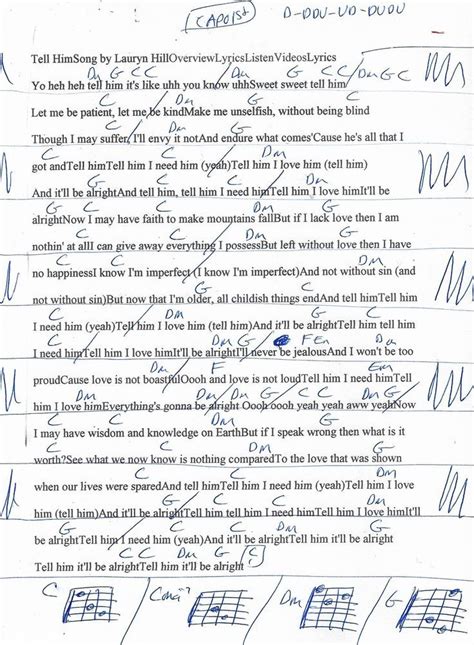 CAPO 1st D-DDU-UD-DUDU
Tell HimSong by Lauryn HillOverviewLyricsListenVideosLyrics
Dm G C C G C C / Dm G C
Yo heh heh tell him it's like uhh you know uhhSweet sweet tell him
C Dm G C
Let me be patient, let me be kindMake me unselfish, without being blind
C Dm G
Though I may suffer, I'll envy it notAnd endure what comes'Cause he's all that I
C C Dm
got andTell himTell him I need him (yeah)Tell him I love him (tell him)
G C C Dm
And it'll be alrightAnd tell him, tell him I need himTell him I love himIt'll be
G C C Dm
alrightNow I may have faith to make mountains fallBut if I lack love then I am
G C C
nothin' at allI can give away everything I possessBut left without love I have
Dm G C C Dm
no happinessI know I'm imperfect (I know I'm imperfect)And not without sin (and
G C
not without sin)But now that I'm older, all childish things endAnd tell himTell him
C Dm G C
I need him (yeah)Tell him I love him (tell him)And it'll be alrightTell him tell him
C Dm G FEm Dm
I need himTell him I love himIt'll be alrightI'll never be jealousAnd I won't be too
Dm F Em
proudCause love is not boastfulOooh and love is not loudTell him I need himTell
Dm Dm G C C Dm G C
him I love himEverything's gonna be alright Oooh oooh yeah yeah aww yeahNow
C Dm G
I may have wisdom and knowledge on EarthBut if I speak wrong then what is it
C C Dm G
worth?See what we now know is nothing comparedTo the love that was shown
C C Dm
when our lives were sparedAnd tell himTell him I need him (yeah)Tell him I love
G C C Dm
him (tell him)And it'll be alrightTell him tell him I need himTell him I love himIt'll
G C Dm G
be alrightTell him I need him (yeah)And it'll be alrightTell him it'll be alright
C C Dm G C
Tell him it'll be alrightTell him it'll be alright
C Dm G